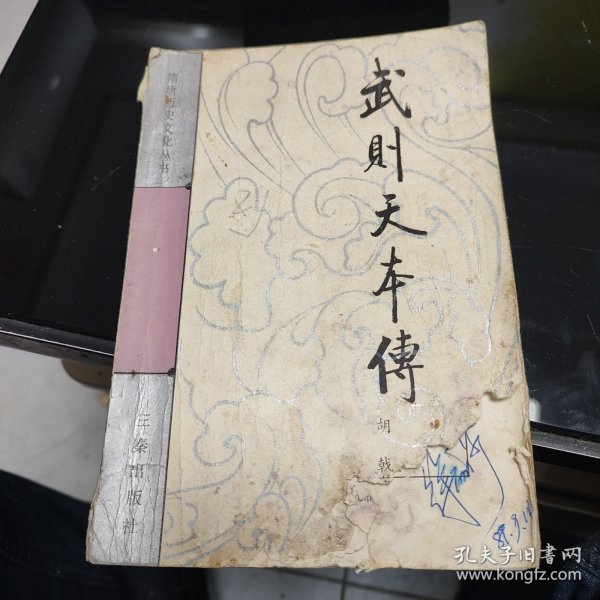 武則天本傳
胡戟
隋唐历史文化丛书
三秦出版社
孔夫子旧书网
www.kongfz.com